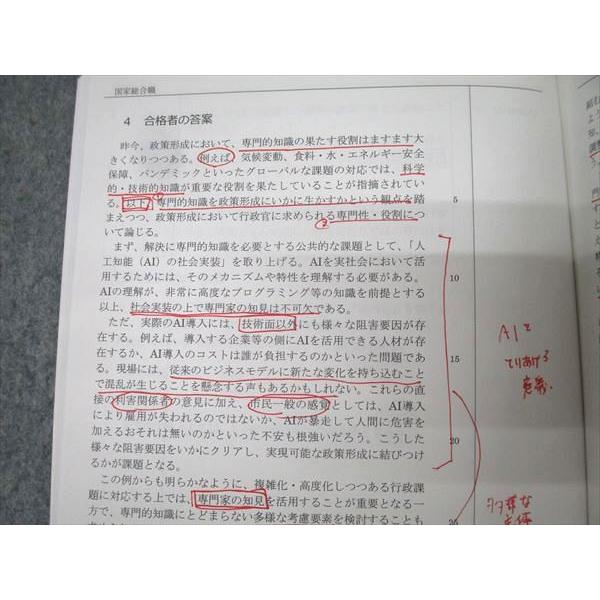 国家総合職
4 合格者の答案
昨今、政策形成において、専門的知識の果たす役割はますます大
きくなりつつある。例えば、気候変動、食料・水・エネルギー安全
保障、パンデミックといったグローバルな課題の対応では、科学
的・技術的知識が重要な役割を果たしていることが指摘されてい
る。以下、専門的知識を政策形成にいかに生かすかという観点を踏
5
まえつつ、政策形成において行政官に求められる専門性・役割につ
いて論じる。
まず、解決に専門的知識を必要とする公共的な課題として、「人
工知能（AI）の社会実装」を取り上げる。AIを実社会において活
用するためには、そのメカニズムや特性を理解する必要がある。
10
AIの理解が、非常に高度なプログラミング等の知識を前提とする
以上、社会実装の上で専門家の知見は不可欠である。
ただ、実際のAI導入には、技術面以外にも様々な阻害要因が存
在する。例えば、導入する企業等の側にAIを活用できる人材が存
在するか、AI導入のコストは誰が負担するのかといった問題であ
15
る。現場には、従来のビジネスモデルに新たな変化を持ち込むこと
で混乱が生じることを懸念する声もあるかもしれない。これらの直
接の利害関係者の意見に加え、市民一般の感覚としては、AI導入
により雇用が失われるのではないか、AIが暴走して人間に危害を
加えるおそれは無いのかといった不安も根強いだろう。こうした
20
様々な阻害要因をいかにクリアし、実現可能な政策形成に結びつけ
るかが課題となる。
この例からも明らかなように、複雑化・高度化しつつある行政課
題に対応する上では、専門家の知見を活用することが重要となる一
方で、専門的知識にとどまらない多様な考慮要素を検討することも
25
①
②
AIを
とりあげる
意義
多様な